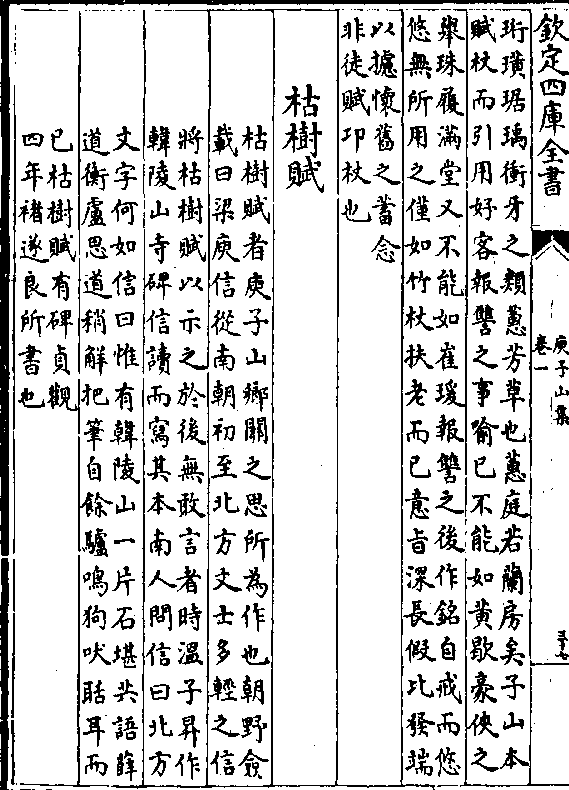 欽定四庫全書
庾子山集
卷一
珩璜琚瑀衝牙之類蕙芳草也蕙庭若蘭房矣子山本
賦杖而引用好客報讐之事喻已不能如黄歇豪俠之
舉珠履滿堂又不能如崔瑗報讐之後作銘自戒而悠
悠無所用之僅如竹杖扶老而已意旨深長假比發端
以攄懷舊之蓄念
非徒賦卭杖也
枯樹賦
枯樹賦者庾子山鄉關之思所為作也朝野僉
載曰梁庾信從南朝初至北方文士多輕之信
將枯樹賦以示之於後無敢言者時溫子昇作
韓陵山寺碑信讀而寫其本南人問信曰北方
文字何如信曰惟有韓陵山一片石堪共語薛
道衡盧思道稍解把筆自餘驢鳴狗吠聒耳而
已枯樹賦有碑貞觀
四年褚遂良所書也